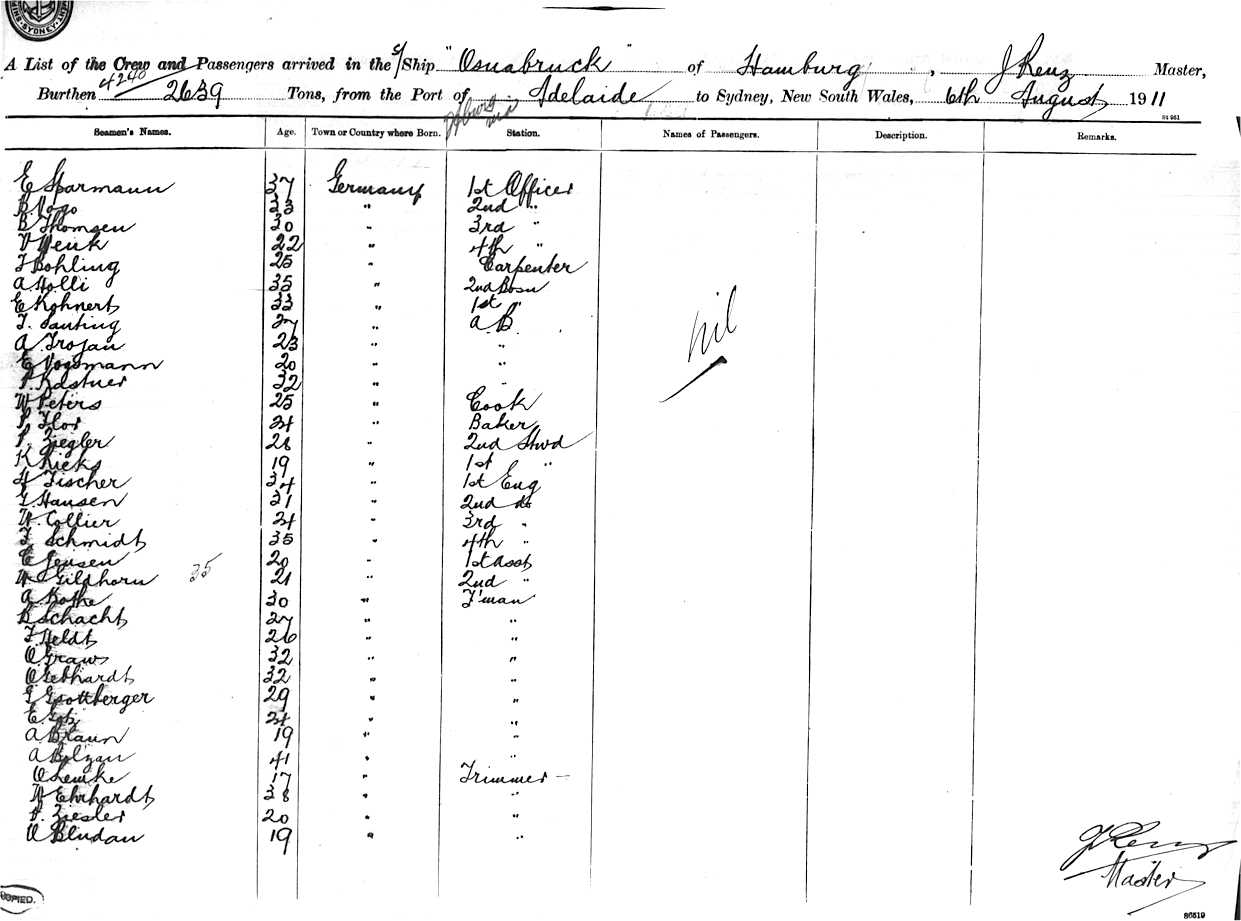 SYDNEY
A List of the Crew and Passengers arrived in the S/Ship "Osnabruck" of Hamburg, J Renz Master,
4240
Burthen 2639 Tons, from the Port of Adelaide to Sydney, New South Wales, 6th August 1911
84 951
Seamen's Names. Age. Town or Country where Born. Station. Names of Passengers. Description. Remarks.
E Sparmann 37 Germany 1st Officer
33 " 2nd "
B Thomsen 30 " 3rd "
22 " 4th "
Bohling 25 " Carpenter
A Holli 35 " 2nd Bosn
E Kohnert 33 " 1st "
27 " A B
A. Trojan 23 " "
E Vogsmann 20 " "
Kastner 32 "
W Peters 25 " Cook
Flor 24 " Baker
P. Ziegler 28 " 2nd Stwd
K Ricks 19 " 1st "
Fischer 34 " 1st Eng
Hansen 31 " 2nd do
W. Collier 24 " 3rd "
Schmidt 35 " 4th "
E Jensen 20 " 1st Asst
W Gildhorn 35 21 " 2nd "
A Kothe 30 " F'man
B Schacht 27 " "
Heldt 26 " "
O Graws 32 " "
O Gebhardt 32 " "
29 " "
24 " "
A Braun 19 " "
A Bolzau 41 " "
O Lemke 17 " Trimmer
W Ehrhardt 38 " "
Ziesler 20 " "
O Bludau 19 " "
nil
J Renz
Master
COPIED.
86519